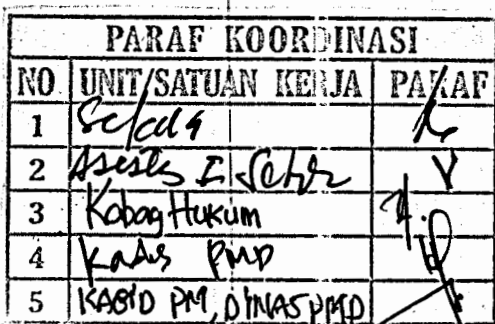 PARAF KOORDINASI
NO UNIT/SATUAN KERJA PARAF
1 Sekda
2 Asisten I Setda
3 Kabag Hukum
4 Kadis PMD
5 KABID PM, DINAS PMD